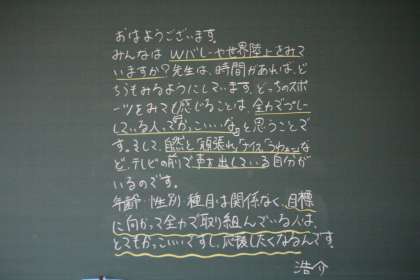 おはようございます。
みんなは Wバレーや世界陸上をみて
いますか？先生は、時間があれば、ど
ちらもみるようにしています。どっちのスポ
ーツをみても感じることは、全力でプレー
している人ってかっこいいな。と思うことで
す。そして、自然と「頑張れ」「ナイス」「うわぁー」な
ど、テレビの前で声を出している自分が
いるのです。
年齢・性別・種目は関係なく、目標
に向かって全力で取り組んでいる人は、
とてもかっこいいですし、応援したくなるんです。
浩介